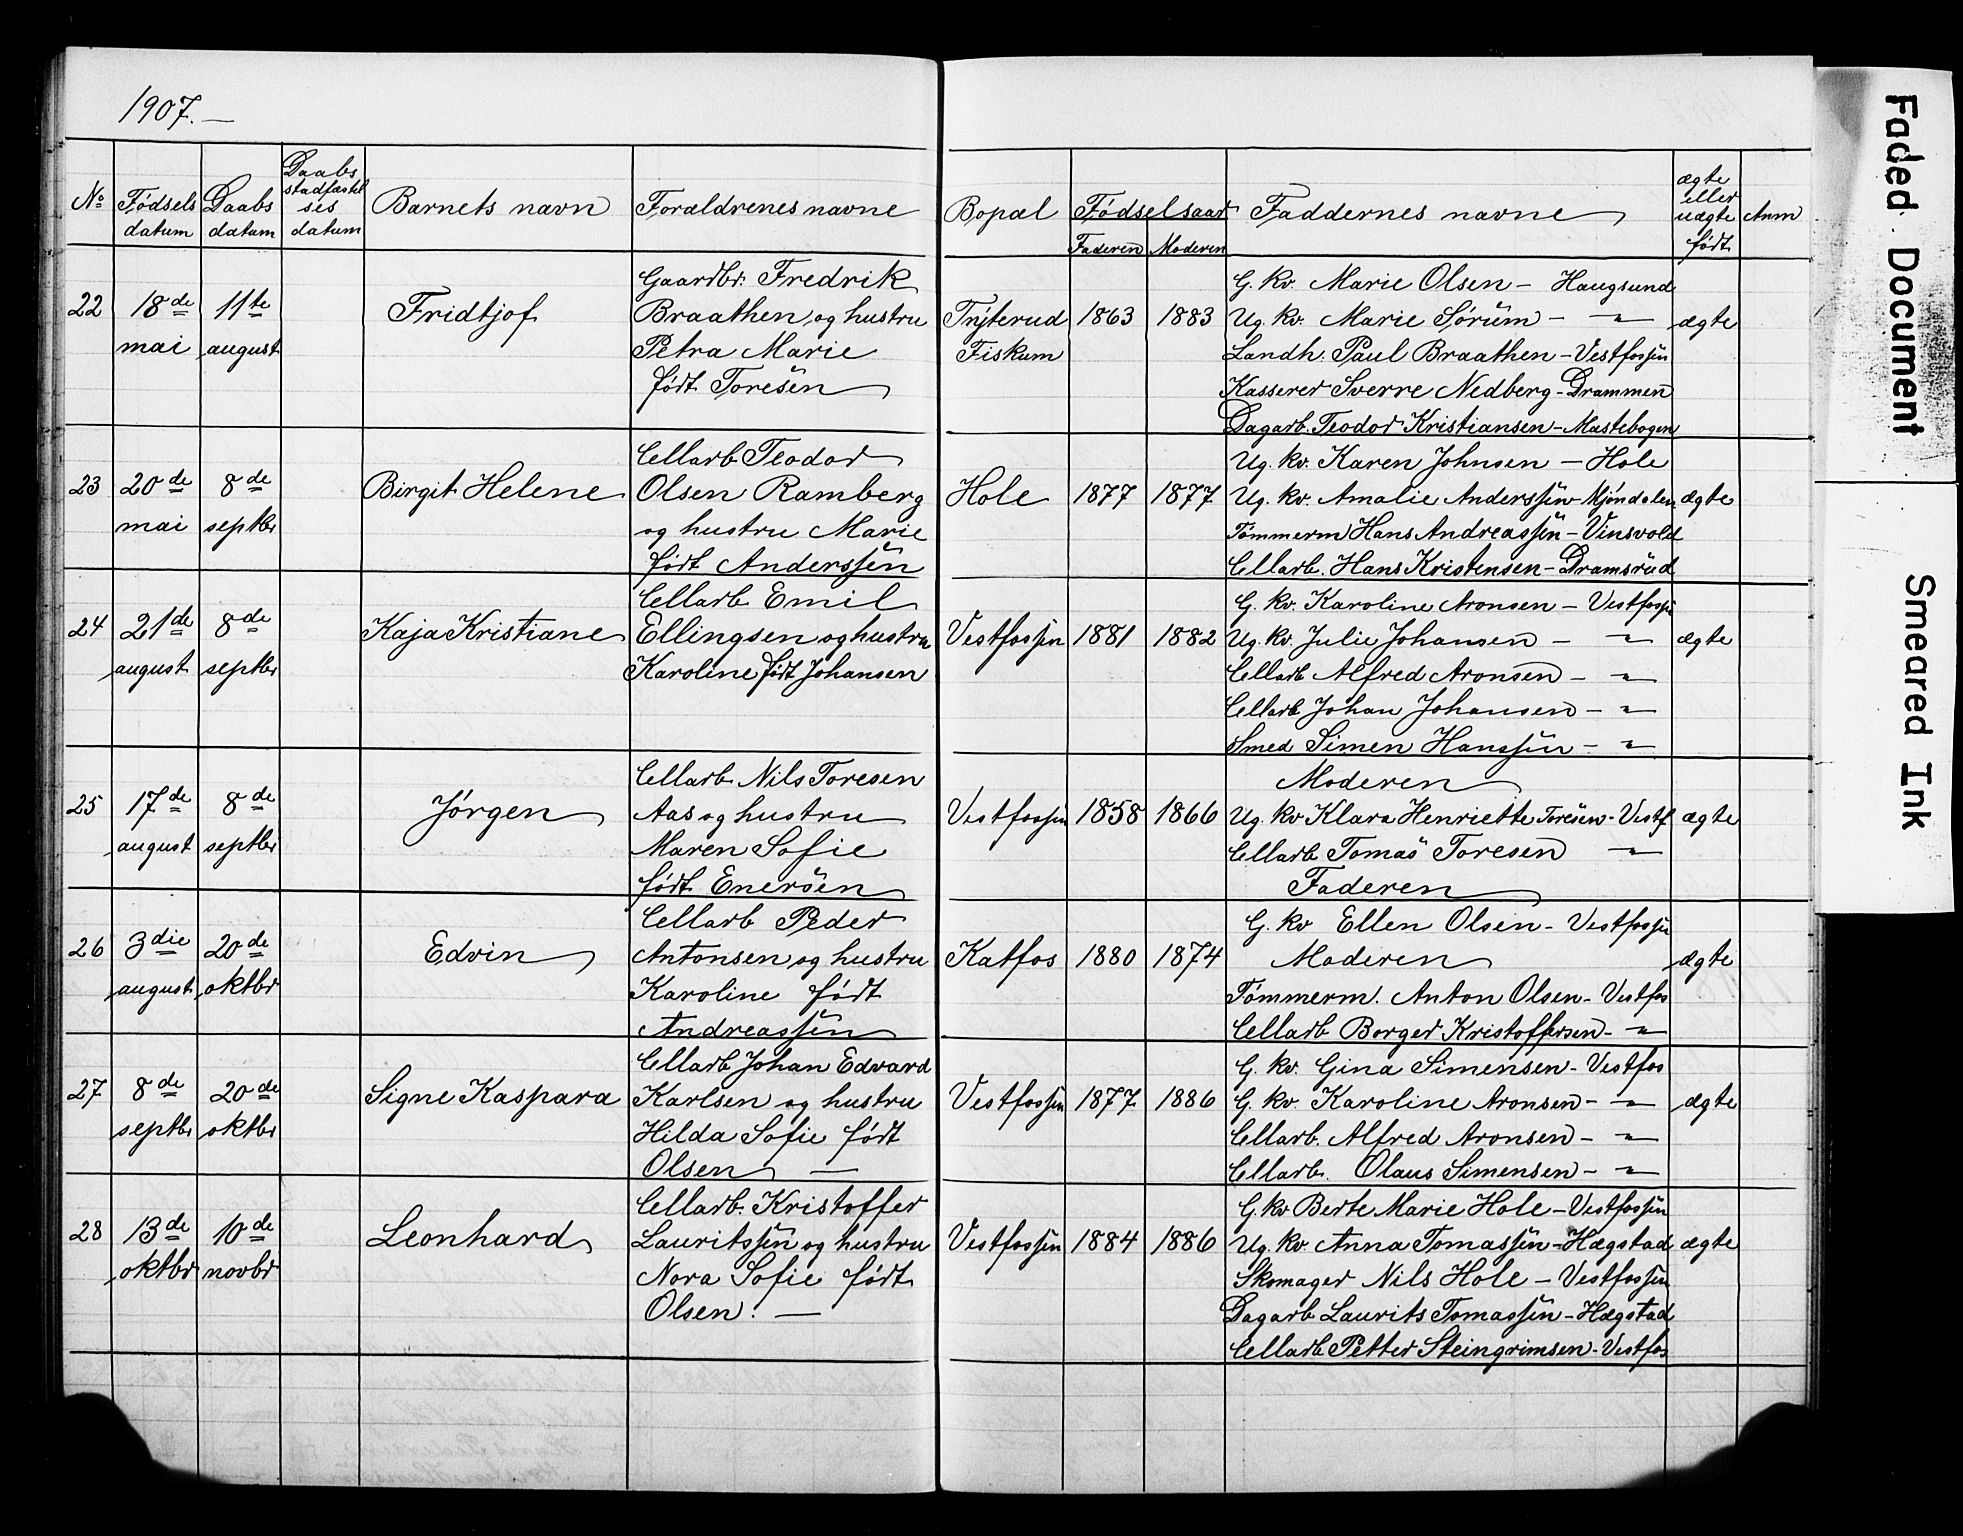 1907.—
No Fødsels datum Daabs datum Daabs stadfæstel ses datum Barnets navn Forældrenes navne Bopæl Fødselsaar Faderen Moderen Faddernes navne ægte eller uægte født Anm
22 18de mai 11te august Fridtjof
Gaardbr. Fredrik
Braathen og hustru
Petra Marie
født Toresen
Fiskum 1863 1883
G. kv. Marie Olsen — Haugsund
Ug. kv. Marie Sørum — " —
Landh. Paul Braathen — Vestfossen
Kasserer Sverre Nedberg — Drammen
Dagarb. Teodor Kristiansen — Mastebogen
ægte
23 20de mai 8de septbr Birgit Helene
Cellarb Teodor
Olsen Ramberg
og hustru Marie
født Anderssen
Hole 1877 1877
Ug. kv. Karen Johnsen — Hole
Ug. kv. Amalie Anderssen — Mjøndalen
Tømmerm Hans Andreassen — Vinsvold
Cellarb. Hans Kristensen — Dramsrud
ægte
24 21de august 8de septbr Kaja Kristiane
Cellarb Emil
Ellingsen og hustru
Karoline født Johansen
Vestfossen 1881 1882
G. kv. Karoline Aronsen — Vestfossen
Ug. kv. Julie Johansen — " —
Cellarb Alfred Aronsen — " —
Cellarb Johan Johansen — " —
Smed Simen Hanssen — " —
ægte
25 17de august 8de septbr Jørgen
Cellarb Nils Toresen
Aas og hustru
Maren Sofie
født Enersen
Vestfossen 1858 1866
Moderen
Ug. kv Klara Henriette Toresen — Vestf
Cellarb Tomas Toresen — " —
Faderen
ægte
26 3die august 20de oktbr Edvin
Cellarb Peder
Antonsen og hustru
Karoline født
Andreassen
Katfos 1880 1874
G. kv Ellen Olsen — Vestfossen
Moderen
Tømmerm. Anton Olsen — Vestfos
Cellarb Borger Kristoffersen — " —
ægte
27 8de septbr 20de oktbr Signe Kaspara
Cellarb Johan Edvard
Karlsen og hustru
Hilda Sofie født
Olsen —
Vestfossen 1877 1886
G. kv. Gina Simensen — Vestfos
G. kv. Karoline Aronsen — " —
Cellarb. Alfred Aronsen — " —
Cellarb. Olaus Simensen — " —
ægte
28 13de oktbr 10de novbr Leonhard
Cellarb. Kristoffer
Lauritssen og hustru
Nora Sofie født
Olsen. —
Vestfossen 1884 1886
G. kv Berte Marie Hole — Vestfossen
Ug. kv. Anna Tomassen — Hægstad
Skomager Nils Hole — Vestfossen
Dagarb Laurits Tomassen — Hægstad
Cellarb Petter Steingrimsen — Vestfos
ægte
Faded Document
Smeared Ink